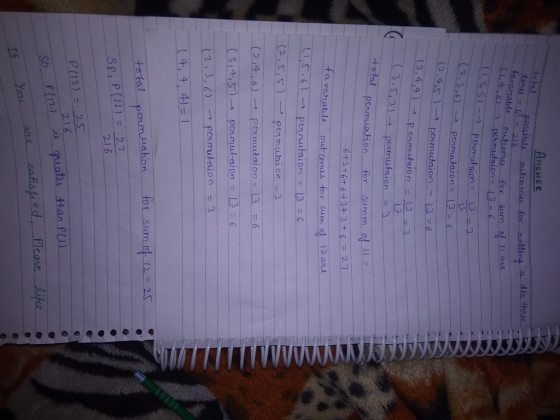 ANSWER
total possible outcomes for rolling a die three
times = 6³ = 216
favorable outcomes for sum of 11 are
(1,4,6) → permutation = ∠3 = 6
(1,5,5) → permutation = ∠3/∠2 = 3
(2,3,6) → permutation = ∠3 = 6
(2,4,5) → permutation = ∠3 = 6
(3,4,4) → permutation = ∠3/∠2 = 3
(3,5,3) → permutation = 3
total permutation for summ of 11 =
6+3+6+6+3+3 = 27
favorable outcomes for sum of 12 are
(1,5,6) → permutation = ∠3 = 6
(2,5,5) → permutation = 3
(2,4,6) → permutation = ∠3 = 6
(3,4,5) → permutation = ∠3 = 6
(3,3,6) → permutation = 3
(4,4,4) = 1
total permutation for sum of 12 = 25
So, P(11) = 27/216
P(12) = 25/216
So P(12) is greater than P(11)
If You are satisfied, Please like